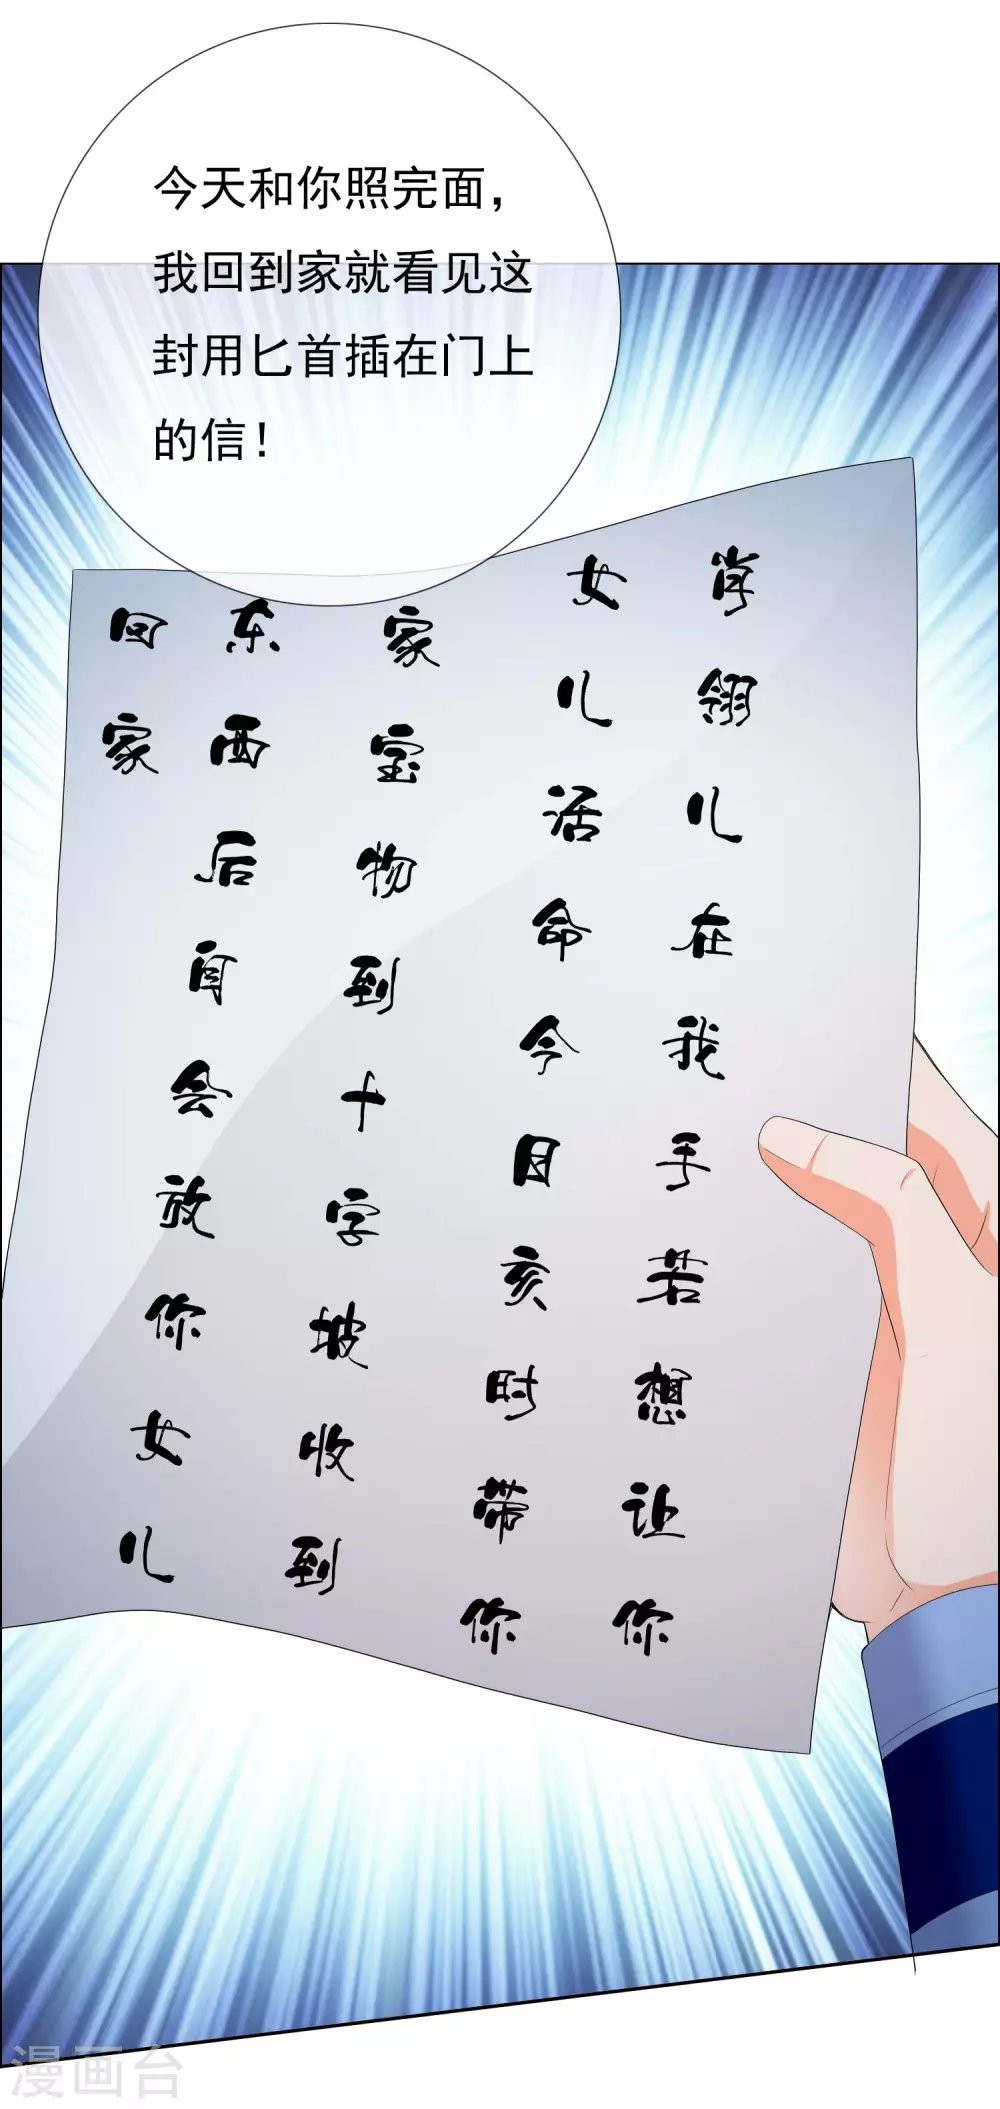 今天和你照完面，
我回到家就看见这
封用匕首插在门上
的信！
肖翎儿在我手若想让你
女儿活命今日亥时带你
家宝物到十字坡收到
东西后自会放你女儿
回家
漫画台